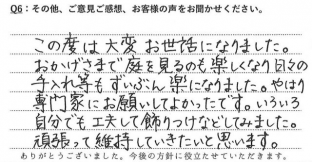 Q6：その他、ご意見ご感想、お客様の声をお聞かせください。
この度は大変お世話になりました。
おかげさまで庭を見るのも楽しくなり日々の
手入れ等もずいぶん楽になりました。やはり
専門家にお願いしてよかったです。いろいろ
自分でも工夫して飾りつけなどしてみました。
頑張って維持していきたいと思います。
ありがとうございました。今後の方針に役立たせていただきます。